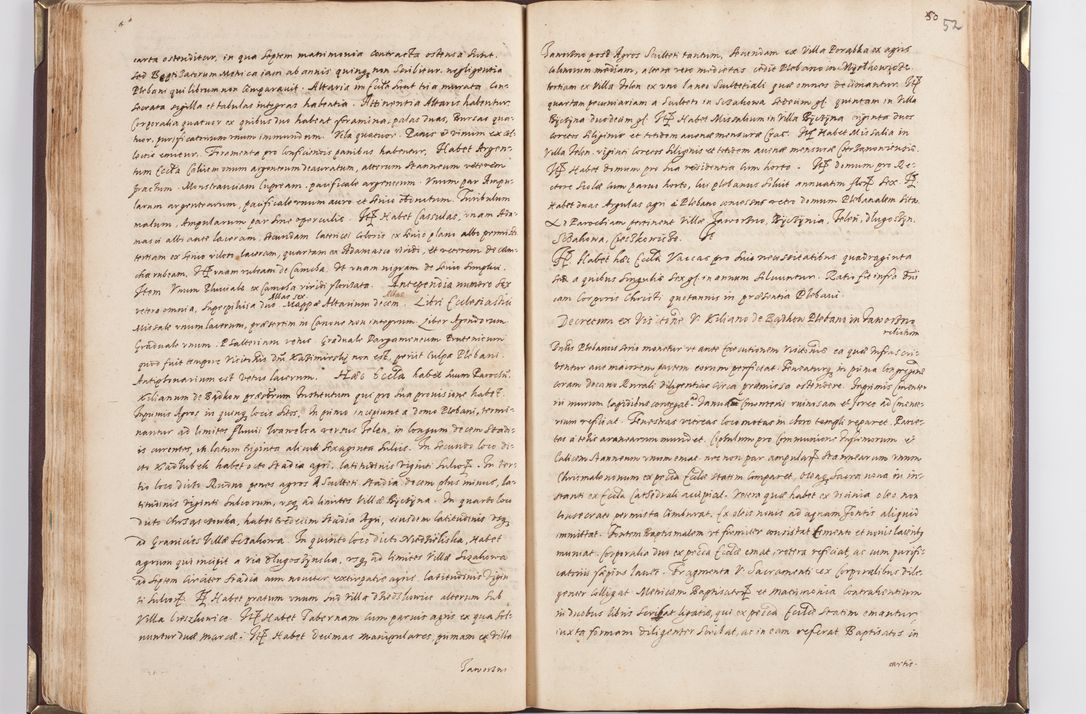 carta ostenditur, in qua septem matrimonia contracta ostensa sunt.
sed Baptisatorum Metrica iam ab annis quinque non scribitur negligentia
Plebani qui librum non comparavit. Altaria in Eccla sunt tria murata, con-
secrata sigilla et tabulas integras habentia. Attinentia Altaris habentur.
Corporalia quatuor ex quibus duo habent foramina, palas duas, Bursas qua-
tuor, purificatorium unum immundum. Vela quatuor. Panis et vinum ex
emuntur. Firamenta pro conficiendis panibus habentur, Habet Argen-
tum Eccla Calicem unum argenteum deauratum, alterum stanneum veterem
fractum. Monstranciam cupream, pacificale argenteum. Unum par Ampu-
larum argentearum, pacificale unum auro et sine. Turribulum
malum, Ampularum par sine operculis. Itē Habet Casulas, unam Ada-
masci albi ante laceram, secundam
tertiam ex viloti laceram, quartam ex Adamasco viridi, et veterem de cam-
cha rubeam. Itē unam rubeam de Camcha. Et unam nigram de
Item Unum Pluviale ex Camcha viridi florisata. Antependia numero sex
vetera omnia, superpelicia duo Albas sex. Mappæ Altarium decem. Libri Ecclesiastici
Missale unum lacerum, præsertim in Canone non integrum. Liber Agendorum
Graduale unum. Psalterium vetus. Graduale Pargameneum Prutenicum
quod fuit tempore Visitōnis Dni Kazimirscij non est, periit Culpa Plebani.
Antiphonarium est vetus lacerum. Hæc Eccla habet suum Parochū.
Kilianum de Badkow præsbrum Institutum qui pro sua provisione habet.
Inprimis Agros in quinque locis sitos. In primo incipiunt a domo Plebani, termi-
nantur ad limites fluvii Iaworska versus Ielen, in longum decem stadi-
is currentes, in latum viginti alicubi sexaginta sulcis. In secundo loco di-
cto Kadlubek habet octo stadia agri, latitudinis viginti sulcorū. In ter-
tio loco dicto Rowna penes agros A Sculteti stadia decem plus minus, la-
titudinis viginti sulcorum, usque ad limites Villæ Byczyna. In quarto loco
dicto Chrząstowka, habet tredecim stadia Agri, eiusdem latitudinis usque
ad Granicies Villæ Sczakowa. In quinto loco dicto Niedzielisko, Habet
agrum qui incipit a via Dlugoszynska, usque ad limites Villæ Sczakowa
ad septem circiter stadia cum noviter extirpatis agris, latitudinis vigin
ti sulcorū. Itē Habet pratum unum sub Villa alterum sub
Villa Ciezkowice. Itē Habet Tabernam cum parvis agris ex qua sol-
vuntur duæ marcæ. Itē Habet decimas manipulares primam ex Villa
Jaworzno
50 52
Jaworzno post Agros Sculteti tantum, secundam ex Villa Poręmbka ex agris
colonorum mediam, altera vero medietas cedit Plebano in Mysłowice.
tertiam ex Villa Ielen ex uno laneo Scultetiali quæ omnes decimantur. Itē
quartam pecuniariam a Sculteti in Sczakowa sedecim gr. quintam in Villa
Byczyna duodecim gr. Itē Habet Missalium in Villa Byczyna viginti duos
coreos siliginis et totidem avenæ mensuræ Crac. Itē Habet Missalia in
Villa Ielen viginti coreos siliginis et totidem avenæ mensuræ
Itē Habet domum pro sua residentia cum horto. Itē domum pro Re-
ctore Scholæ cum parvo horto, cui plebanus solvit annuatim flor. sex. Itē
Habet unas Argulas agri a Plebano concessas retro domum Plebanalem sita.
Ad Parochiam pertinent Villæ Jaworzno, Byczynia, Ielen, Dlugoszyn,
Sczakowa, Ciezkowice.
Itē Habet hæc Eccla Vaccas pro suis necessitatibus quadraginta
a quibus singulis sex gr in annum solvuntur. Ratio fit infra Octa-
vam Corporis Christi quotannis in præsentia Plebani.
Decretum ex Visitōne V. Kiliano de Badkow Plebani in Jaworzno
relictum
Dictus Plebanus serio monetur ut ante executionem Visitōnis ea quæ infra scri-
bentur aut maiorem partem eorum perficiat. Teneaturque in prima congregne
coram decano Rurali diligentiæ circa præmissa ostendere. Inprimis cimite-
rii murum lapidibus contegat. Ianuam cimiterii ruinosam et fores ad cimite-
rium reficiat. Fenestras vitreas loco motas in choro templi reparet. Parie-
tes a telis aranearum mundet. Ciphulum pro Communione Infirmorum et
Calicem stanneum unum emat nec non par ampularū stannearum unum
Chrismale novum ex prēta Ecclæ statim comparet, Oleaque Sacra nova in in-
stanti ex Eccla Cathedrali accipiat. Veterum quæ habet ex vicinia oleo non
consecrato permixta comburat. Ex oleis novis ad aquam fontis aliquid
immittat. Fontem Baptismalem ut firmiter consistat cimento et novis lateribus
muniat. Corporalia duo ex prēta Ecclæ emat, vetera reficiat, ac cum purifi-
catoriis sæpius lavet. Fragmenta V. Sacramenti ex Corporalibus dili-
genter colligat. Metricam Baptisatorū et matrimonia contrahentium
in duobus libris scribat ligatis, qui ex prēta Ecclæ statim emantur,
iuxta formam diligenter scribat, ac in eam referat Baptisatos in
cartis.